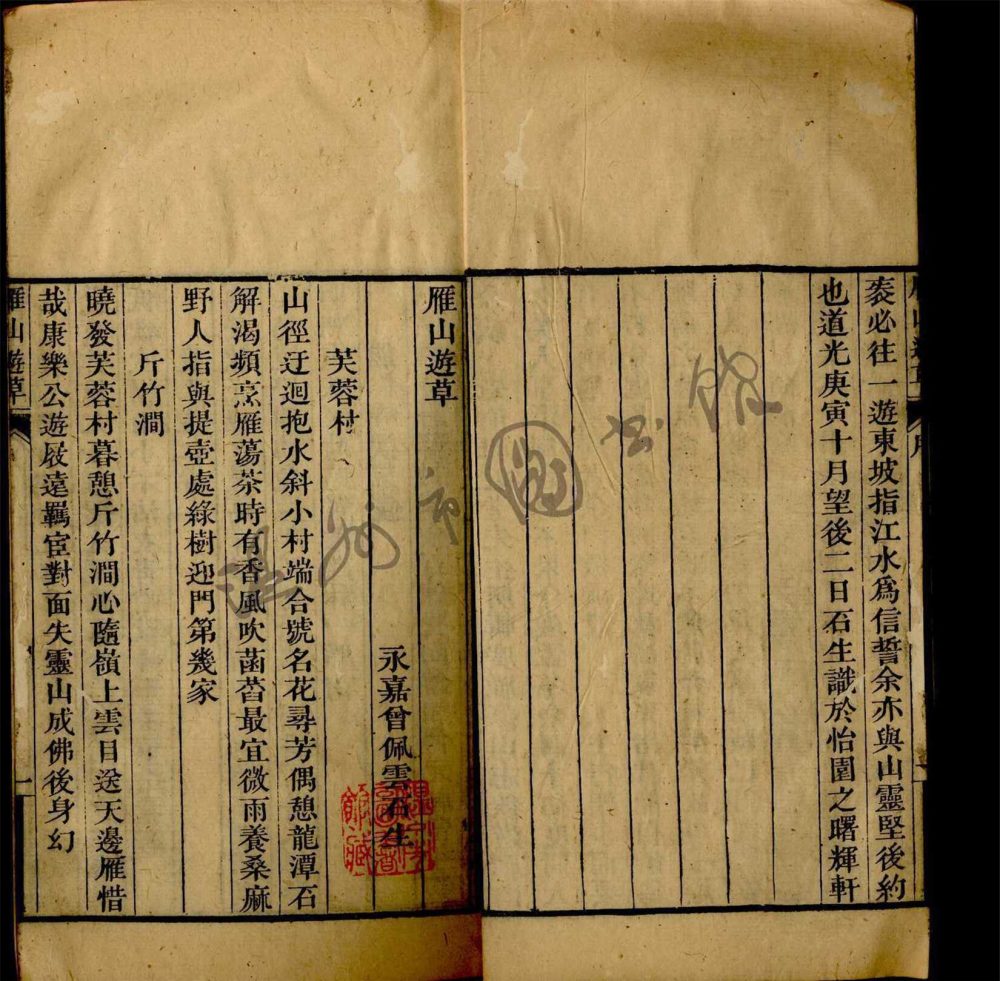 袤必往一遊東坡指江水為信誓余亦與山靈堅後約
也道光庚寅十月望後二日石生識於怡園之曙輝軒
雁山遊草
永嘉曾佩雲石生
芙蓉村
山徑迂迴抱水斜小村端合號名花尋芳偶憩龍潭石
解渴頻烹雁蕩茶時有香風吹菡萏最宜微雨養桑麻
野人指與提壺處綠樹迎門第幾家
斤竹澗
曉發芙蓉村暮憩斤竹澗心隨嶺上雲目送天邊雁惜
哉康樂公遊屐遠羈宦對面失靈山成佛後身幻
雁山遊草
一
溫州市圖書館